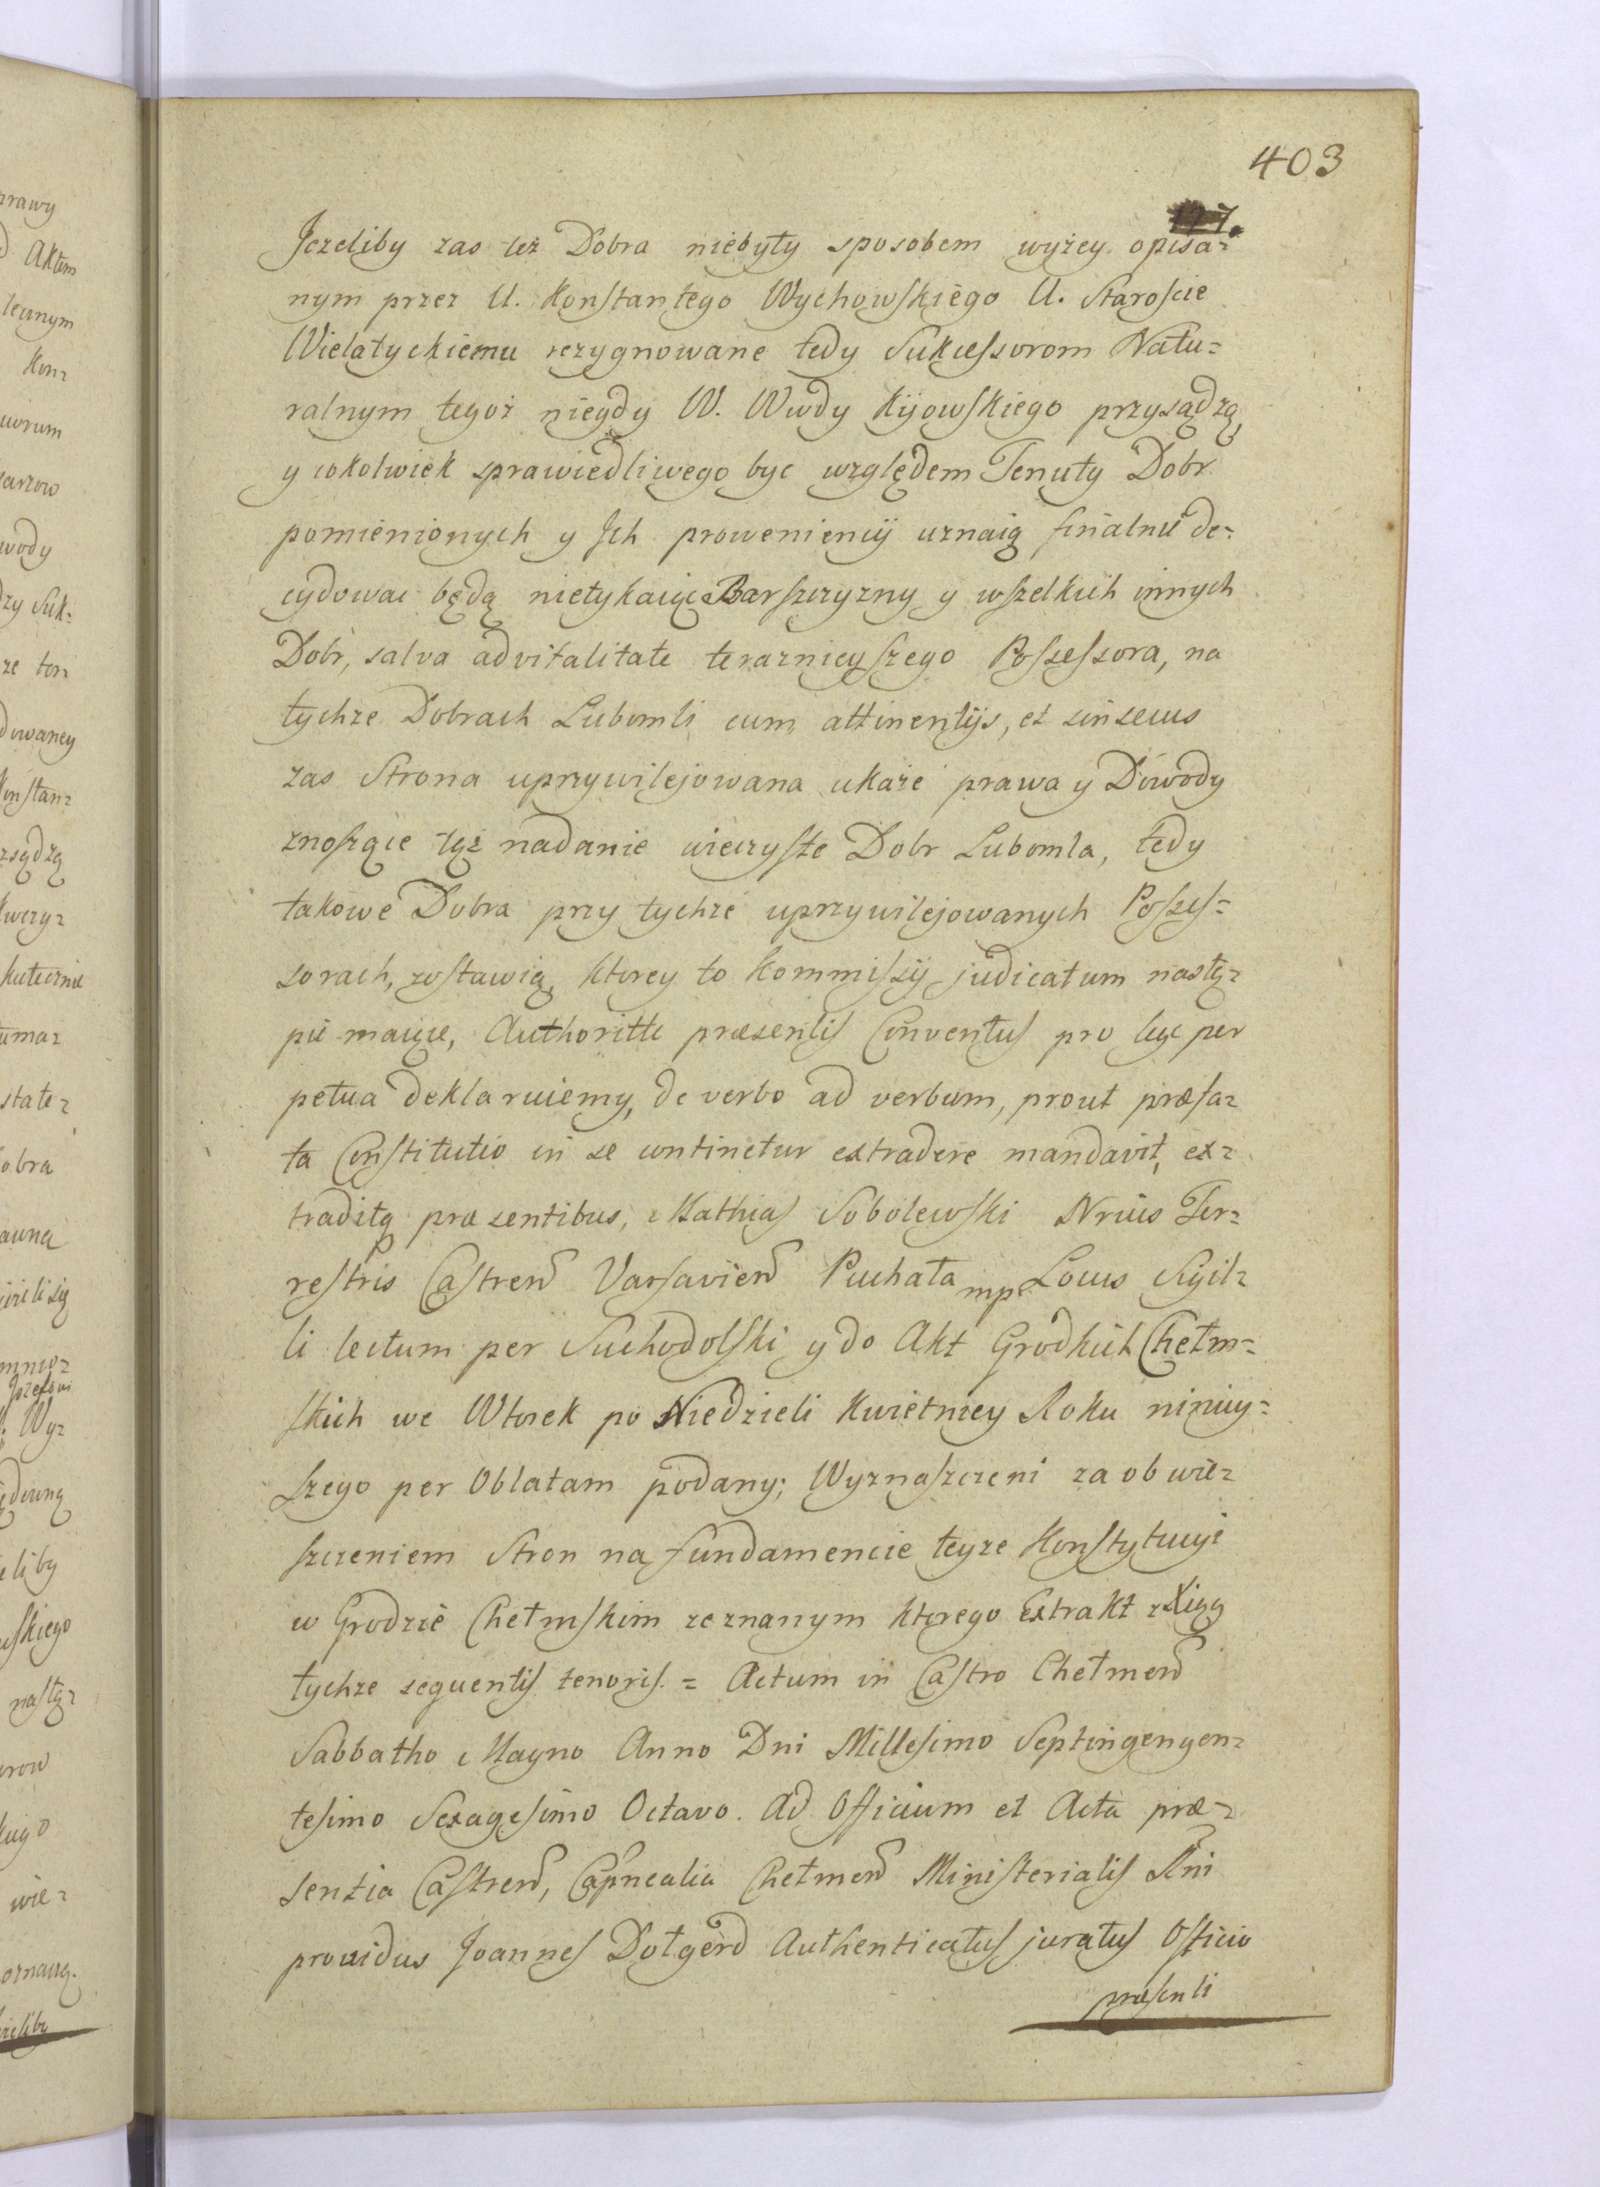 403
127.
Jezeliby zas też Dobra niebyły sposobem wyżey opisa=
nym przez U. Konstantego Wychowskiego U. Staroscie
Wielatyckiemu rezygnowane tedy Sukcessorom Natu=
ralnym tegoż niegdy W. Wwdy Kijowskiego przysądzą,
y cokolwiek sprawiedliwego byc względem Tenuty Dobr
pomienionych y Jch proweniencij uznaią finalnie de=
cydowac będą nietykaiąc Barszczyzny y wszelkich innych
Dobr, salva advitalitate teraznieyszego Possessora, na
tychze Dobrach Lubomli cum attinentijs, et sin secus
zas Strona uprzywilejowana ukaże prawa y Dowody
znoszące też nadanie wieczyste Dobr Lubomla, tedy
takowe Dobra przy tychże uprzywilejowanych Posses=
sorach, zostawią, ktorey to Kommissij judicatum nastę=
pić maiące, Authoritte præsentis Conventus pro lege per
petua deklaruiemy, de verbo ad verbum, prout præfa=
ta Constitutio in se continetur extradere mandavit, ex=
tradita præsentibus, Mathias Sobolewski Nrius Ter=
restris Castren Varsavien Puchała mp Locus Sigil=
li lectum per Suchodolski y do Akt Grodkich Chełm=
skich we Wtorek po Niedzieli Kwietniey Roku niniey=
szego per Oblatam podany; Wyznaszczeni za obwie=
szczeniem Stron na fundamencie teyze Konstytucyi
w Grodzie Chełmskim zeznanym ktorego Extrakt z Xiąg
tychze sequentis tenoris. = Actum in Castro Chełmen
Sabbatho Magno Anno Dni Millesimo Septingengen=
tesimo Sexagesimo Octavo. Ad Officium et Acta præ=
sentia Castren, Capnealia Chełmen Ministerialis Rni
providus Joannes Dołgerd Authenticatus juratus Officio
præsenti